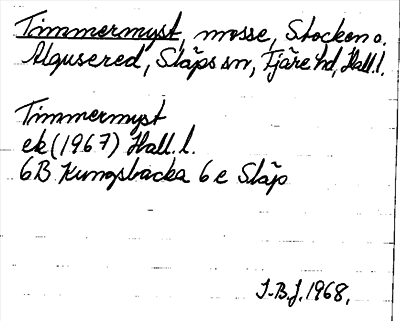 Timmermyst, mosse, Stocken o.
Algusered, Släps sn, Fjäre hd, Hall. l.
Timmermyst
ek (1967) Hall. l.
6B Kungsbacka 6e Släp
I.B.J. 1968.